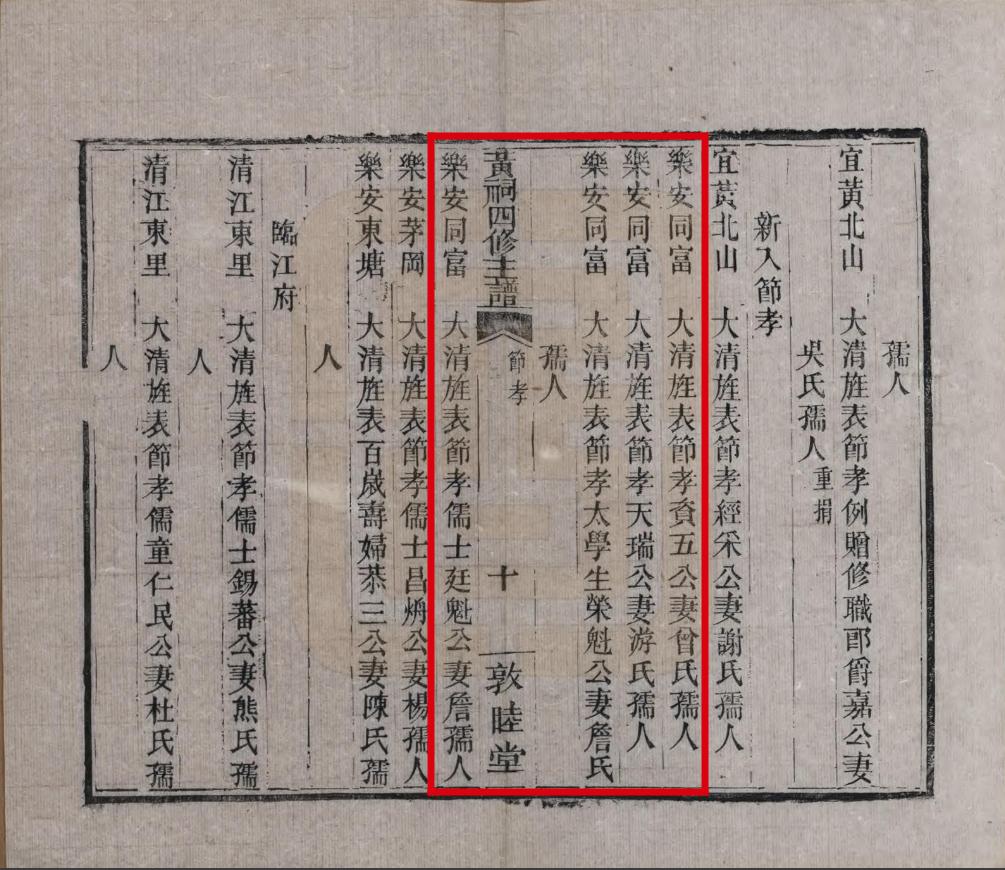 孺人
宜黃北山　大清旌表節孝例贈修職郎爵嘉公妻
吳氏孺人重捐
新入節孝
宜黃北山　大清旌表節孝經采公妻謝氏孺人
樂安同富　大清旌表節孝資五公妻曾氏孺人
樂安同富　大清旌表節孝天瑞公妻游氏孺人
樂安同富　大清旌表節孝太學生榮魁公妻詹氏
孺人
黃祠四修主譜　節孝　十　敦睦堂
樂安同富　大清旌表節孝儒士廷魁公妻詹孺人
樂安茅岡　大清旌表節孝儒士昌炳公妻楊孺人
樂安東塘　大清旌表百歲壽婦恭三公妻陳氏孺
人
臨江府
清江東里　大清旌表節孝儒士錫蕃公妻熊氏孺
人
清江東里　大清旌表節孝儒童仁民公妻杜氏孺
人